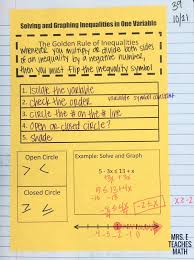 39
10/21
Solving and Graphing Inequalities in One Variable
The Golden Rule of Inequalities
Whenever you multiply or divide both sides
of an inequality by a negative number,
then you must flip the inequality symbol
1. Isolate the variable
2. check the order
variable symbol constant
3. circle the # on the # line
4. Open or closed circle?
5. shade
Open Circle
< >
Closed Circle
≤ ≥
Example: Solve and Graph
5 - 3x ≤ 13 + x
+3x +3x
5 ≤ 13 + 4x
-13 -13
-2 ≤ x
x ≥ -2
MRS. E
TEACHES
MATH